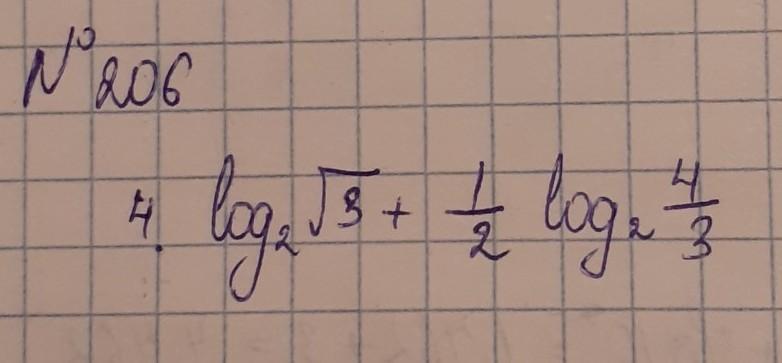 № 206
4. log₂ √3 + 1/2 log₂ 4/3